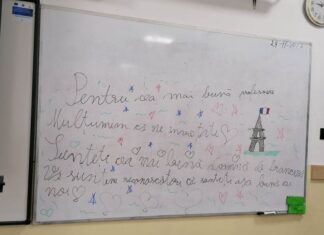 Pentru cea mai bună profesoară
Mulțumim că ne învățați
Sunteți cea mai bună doamnă de franceză
Vă suntem recunoscători că sunteți așa bună cu
noi